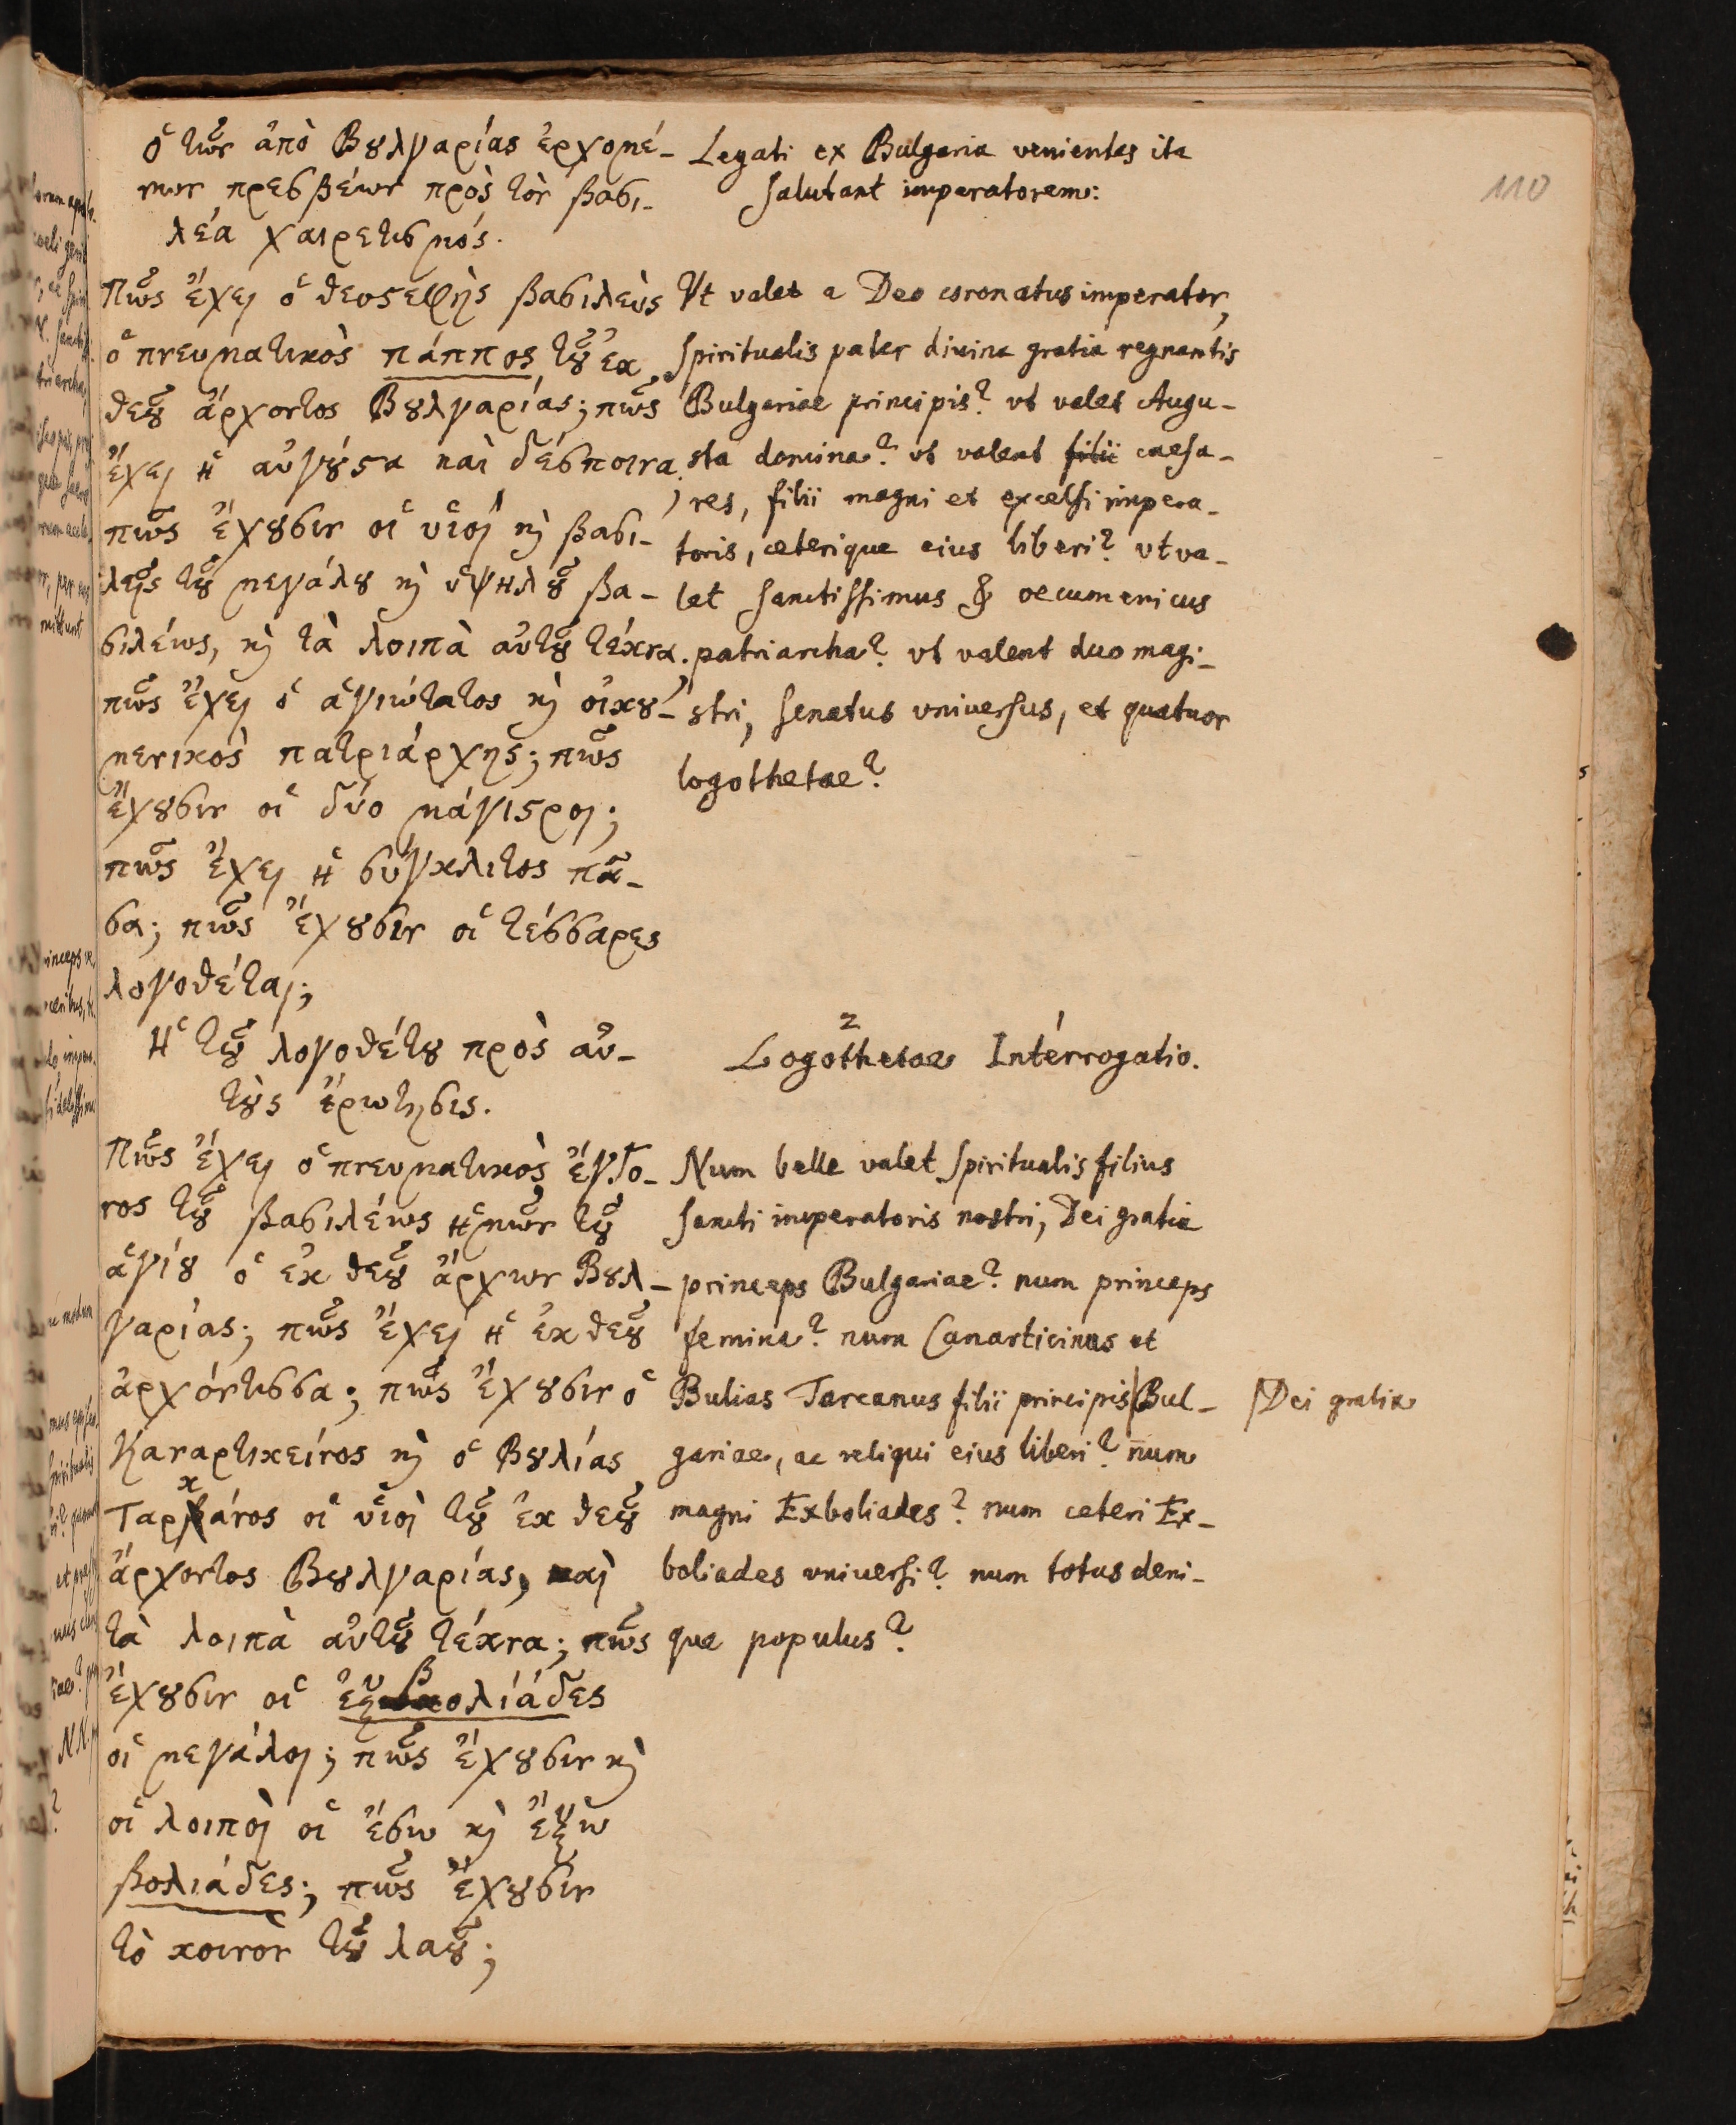 110
ὁ τῶν ἀπὸ Βουλγαρίας ἐρχομέ-
νων πρεσβέων πρὸς τὸν βασι-
λέα χαιρετισμός.
Πῶς ἔχει ὁ θεοστεφὴς βασιλεὺς
ὁ πνευματικὸς πάππος τοῦ ἐκ
θεοῦ ἄρχοντος Βουλγαρίας; πῶς
ἔχει ἡ αὐγούστα καὶ δέσποινα;
πῶς ἔχουσιν οἱ υἱοὶ κὶ βασι-
λεῖς τοῦ μεγάλου κὶ ὑψηλοῦ βα-
σιλέως, κὶ τὰ λοιπὰ αὐτοῦ τέκνα;
πῶς ἔχει ὁ ἁγιώτατος κὶ οἰκου-
μενικὸς πατριάρχης; πῶς
ἔχουσιν οἱ δύο μάγιστροι;
πῶς ἔχει ἡ σύγκλιτος πᾶ-
σα; πῶς ἔχουσιν οἱ τέσσαρες
λογοθέται;
Ἡ τοῦ λογοθέτου πρὸς αὐ-
τοὺς ἐρώτησις.
Πῶς ἔχει ὁ πνευματικὸς ἔγγο-
νος τοῦ βασιλέως ἡμῶν τοῦ
ἁγίου ὁ ἐκ θεοῦ ἄρχων Βουλ-
γαρίας; πῶς ἔχει ἡ ἐκ θεοῦ
ἀρχόντισσα; πῶς ἔχουσιν ὁ
Καναρτικεῖνος κὶ ὁ Βουλίας
Ταρκάνος οἱ υἱοὶ τοῦ ἐκ θεοῦ
ἄρχοντος Βουλγαρίας, καὶ
τὰ λοιπὰ αὐτοῦ τέκνα; πῶς
ἔχουσιν οἱ ἐξβολιάδες
οἱ μεγάλοι; πῶς ἔχουσιν κὶ
οἱ λοιποὶ οἱ ἔσω κὶ ἔξω
βολιάδες; πῶς ἔχουσιν
τὸ κοινὸν τοῦ λαοῦ;
Legati ex Bulgaria venientes ita
salutant imperatorem:
Vt valet a Deo coronatus imperator,
spiritualis pater diuina gratia regnantis
Bulgariae principis? vt valet Augu-
sta domina? vt valent filii caesa-
res, filii magni et excelsi impera-
toris, ceterique eius liberi? vt va-
let sanctissimus & oecumenicus
patriarcha? vt valent duo magi-
stri, senatus vniuersus, et quatuor
logothetae?
2
Logothetae Interrogatio.
Num belle valet spiritualis filius
sancti imperatoris nostri, Dei gratia
princeps Bulgariae? num princeps
femina? num Canarticinus et
Bulias Tarcanus filii principis|Bul-
|Dei gratia
gariae, ac reliqui eius liberi? num
magni Exboliades? num ceteri Ex-
boliades vniuersi? num totus deni-
que populus?